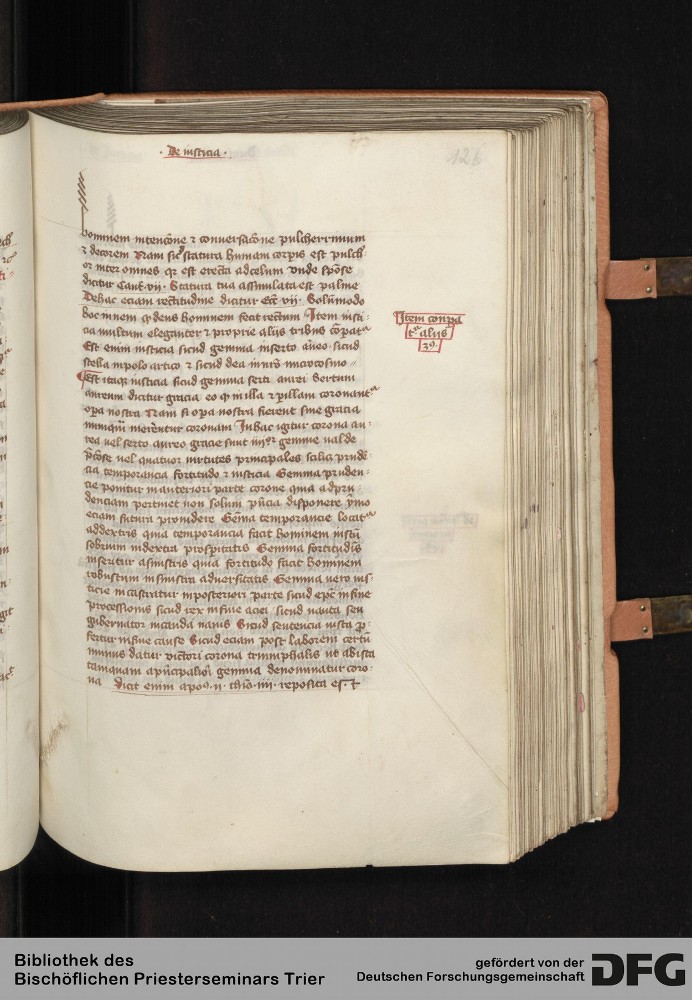 · De iusticia ·
126
hominem intencōne ⁊ conversacōne pulcherrimum
⁊ decorem Nam sic̄ statura humani corp̄is est pulch̄
or inter omnes qr̄ est erecta ad celum vnde sp̄onse
dicitur Cant̄ vij. Statura tua assimilata est palme
De hac eciam rectitudine dicitur Ecc̄ vij. Solummodo
hoc inveni q̄ deus hominem fecit rectum Item iusti⸗
cia multum eleganter ⁊ proprie alijs tribus cōparatᵃ
Est enim iusticia sicud gemma in serto aureo sicud
stella in polo artico ⁊ sicud dea in
Est itaqꝫ iusticia sicud gemma serti aurei Sertum
aureum dicitur gracia eo qꝫ illa ⁊ per illam coronantᵃ
opera nostra Nam si opa nostra fierent sine gracia
nunqūm merēntur coronam In hac igitur corona au⸗
rea vel serto aureo gracie sunt iiijor gemme valde
p̄ciose vel quatuor virtutes principales scilicꝫ prudē⸗
cia temporancia fortitudo ⁊ iusticia Gemma pruden⸗
cie ponitur in anteriori parte corone quia ad pru⸗
denciam pertinet non solum pn̄cia disponere ymo
eciam futura providere Gēma temporancie locatᵃ
a dextris quia temporancia facit hominem
sobrium in dextra prosperitatis Gemma fortitudinis
inseritur a sinistris quia fortitudo facit hominem
robustum in sinistra adversitatis Gemma vero ius⸗
ticie in posteriori parte sicud epc̄ in fine
processionis sicud rex in fine aciei sicud nauta seu
gubernator in cauda navis Sicud sentencia iusta p̄⸗
fertur in fine cause Sicud eciam post laborem certa⸗
minis datur victori corona triumphalis vt ab ista
tamquam a pn̄cipaliori gemma denominatur coro⸗
na Dicit enim apo⁹. ii. thīo. iiij. reposita eſ. ⁊
Item conpa
tᵃ alijs
3⁹.
Bibliothek des
Bischöflichen Priesterseminars Trier
gefördert von der
Deutschen Forschungsgemeinschaft
DFG